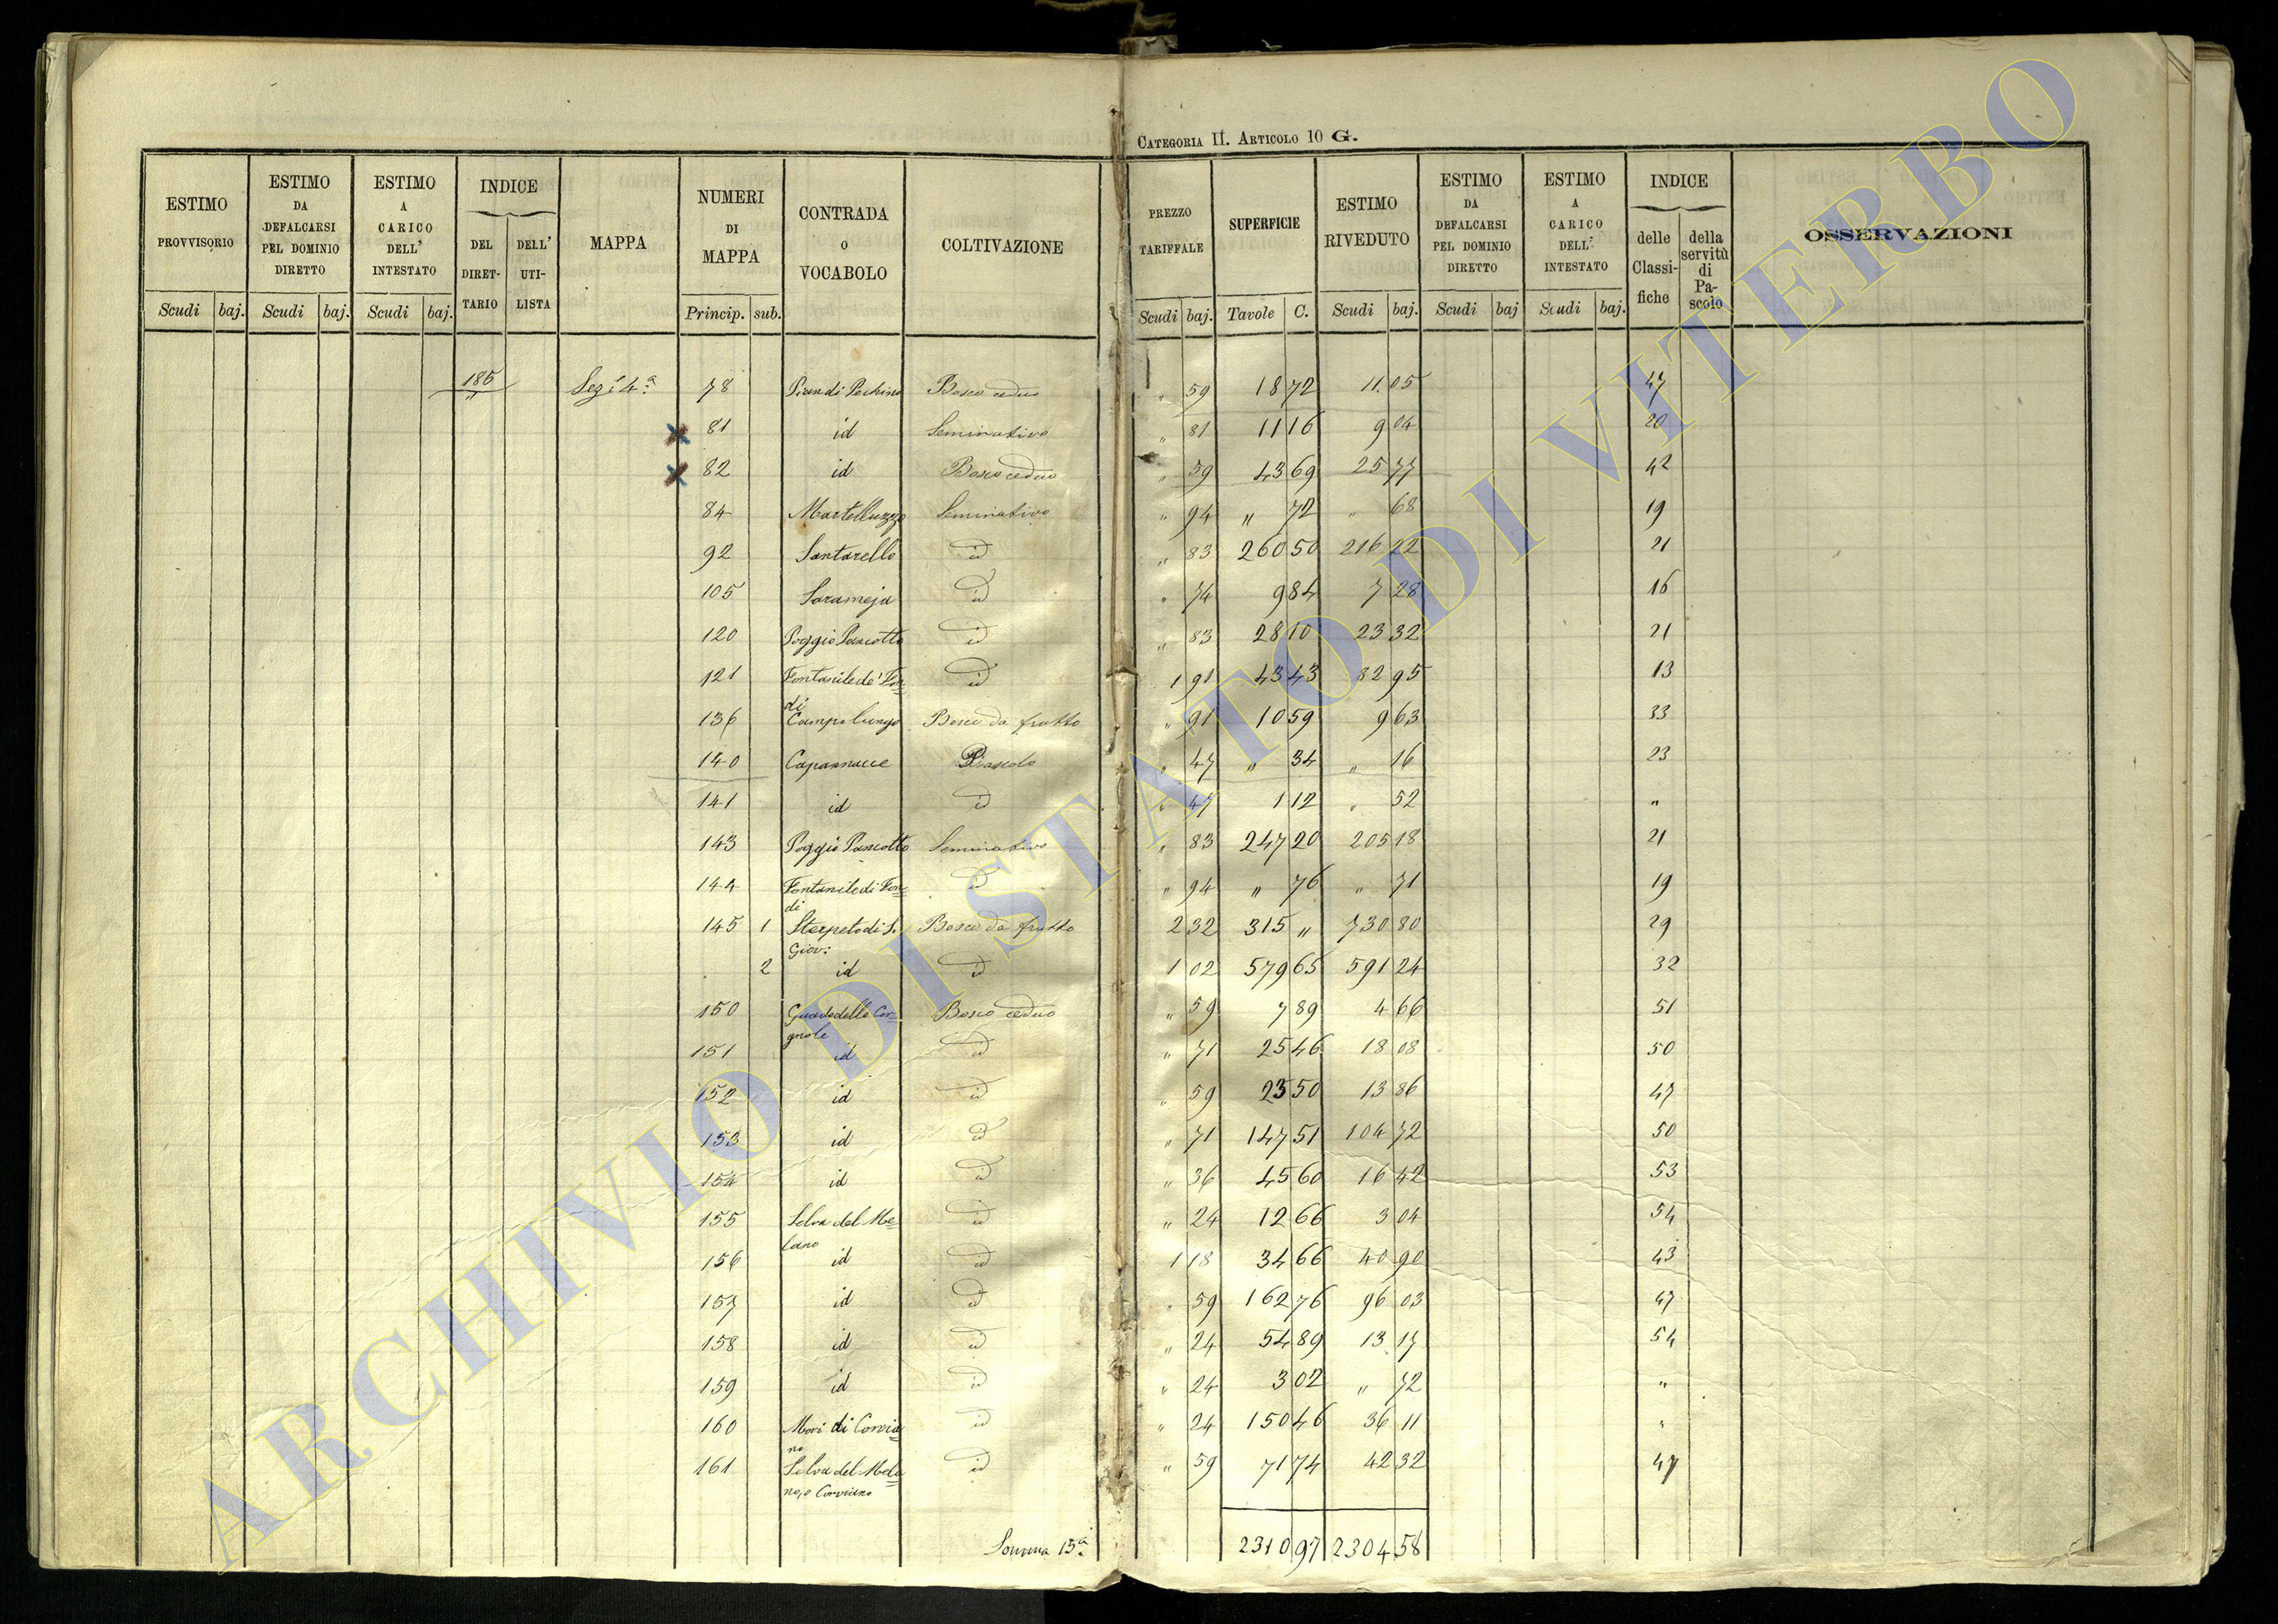 CATEGORIA II. ARTICOLO 10 G.
ESTIMO PROVVISORIO | ESTIMO DA DEFALCARSI PEL DOMINIO DIRETTO | ESTIMO A CARICO DELL' INTESTATO | INDICE DEL DIRETTARIO | DELL' UTILISTA | MAPPA | NUMERI DI MAPPA | CONTRADA O VOCABOLO | COLTIVAZIONE | PREZZO TARIFFALE | SUPERFICIE | ESTIMO RIVEDUTO | ESTIMO DA DEFALCARSI PEL DOMINIO DIRETTO | ESTIMO A CARICO DELL' INTESTATO | INDICE delle Classifiche | della servitù di Pascolo | OSSERVAZIONI
Scudi baj. Scudi baj. Scudi baj. Princip. sub. Scudi baj. Tavole C. Scudi baj. Scudi baj Scudi baj.
185 Sez.e 4ª 78 Pian di Bosco ceduo " 59 18 72 11 05 47
81 id Seminativo " 81 11 16 9 04 20
82 id Bosco ceduo " 59 43 69 25 77 42
84 Martelluzzo Seminativo " 94 " 72 " 68 19
92 Santarello id " 83 260 50 216 22 21
105 Sarameja id " 74 9 84 7 28 16
120 Poggio Pancotto id " 83 28 10 23 32 21
121 Fontanile de' Fon=
di id 1 91 43 43 82 95 13
136 Campo lungo Bosco da frutto " 91 10 59 9 63 33
140 Capannacce Pascolo " 47 " 34 " 16 23
141 id id " 47 1 12 " 52 "
143 Poggio Pancotto Seminativo " 83 247 20 205 18 21
144 Fontanile di Fon=
di id " 94 " 76 " 71 19
145 1 Sterpeto di S.
Giov: Bosco da frutto 2 32 315 " 730 80 29
2 id id 1 02 579 65 591 24 32
150 Guado delle Cor=
gnole Bosco ceduo " 59 7 89 4 66 51
151 id id " 71 25 46 18 08 50
152 id id " 59 23 50 13 86 47
153 id id " 71 147 51 104 72 50
154 id id " 36 45 60 16 42 53
155 Selva del Me=
lano id " 24 12 66 3 04 54
156 id id 1 18 34 66 40 90 43
157 id id " 59 162 76 96 03 47
158 id id " 24 54 89 13 17 54
159 id id " 24 3 02 " 72 "
160 Mori di Corvia=
no id " 24 150 46 36 11 "
161 Selva del Mela=
no, o Corviano id " 59 71 74 42 32 47
Somma 13ª 2310 97 2304 58
ARCHIVIO DI STATO DI VITERBO